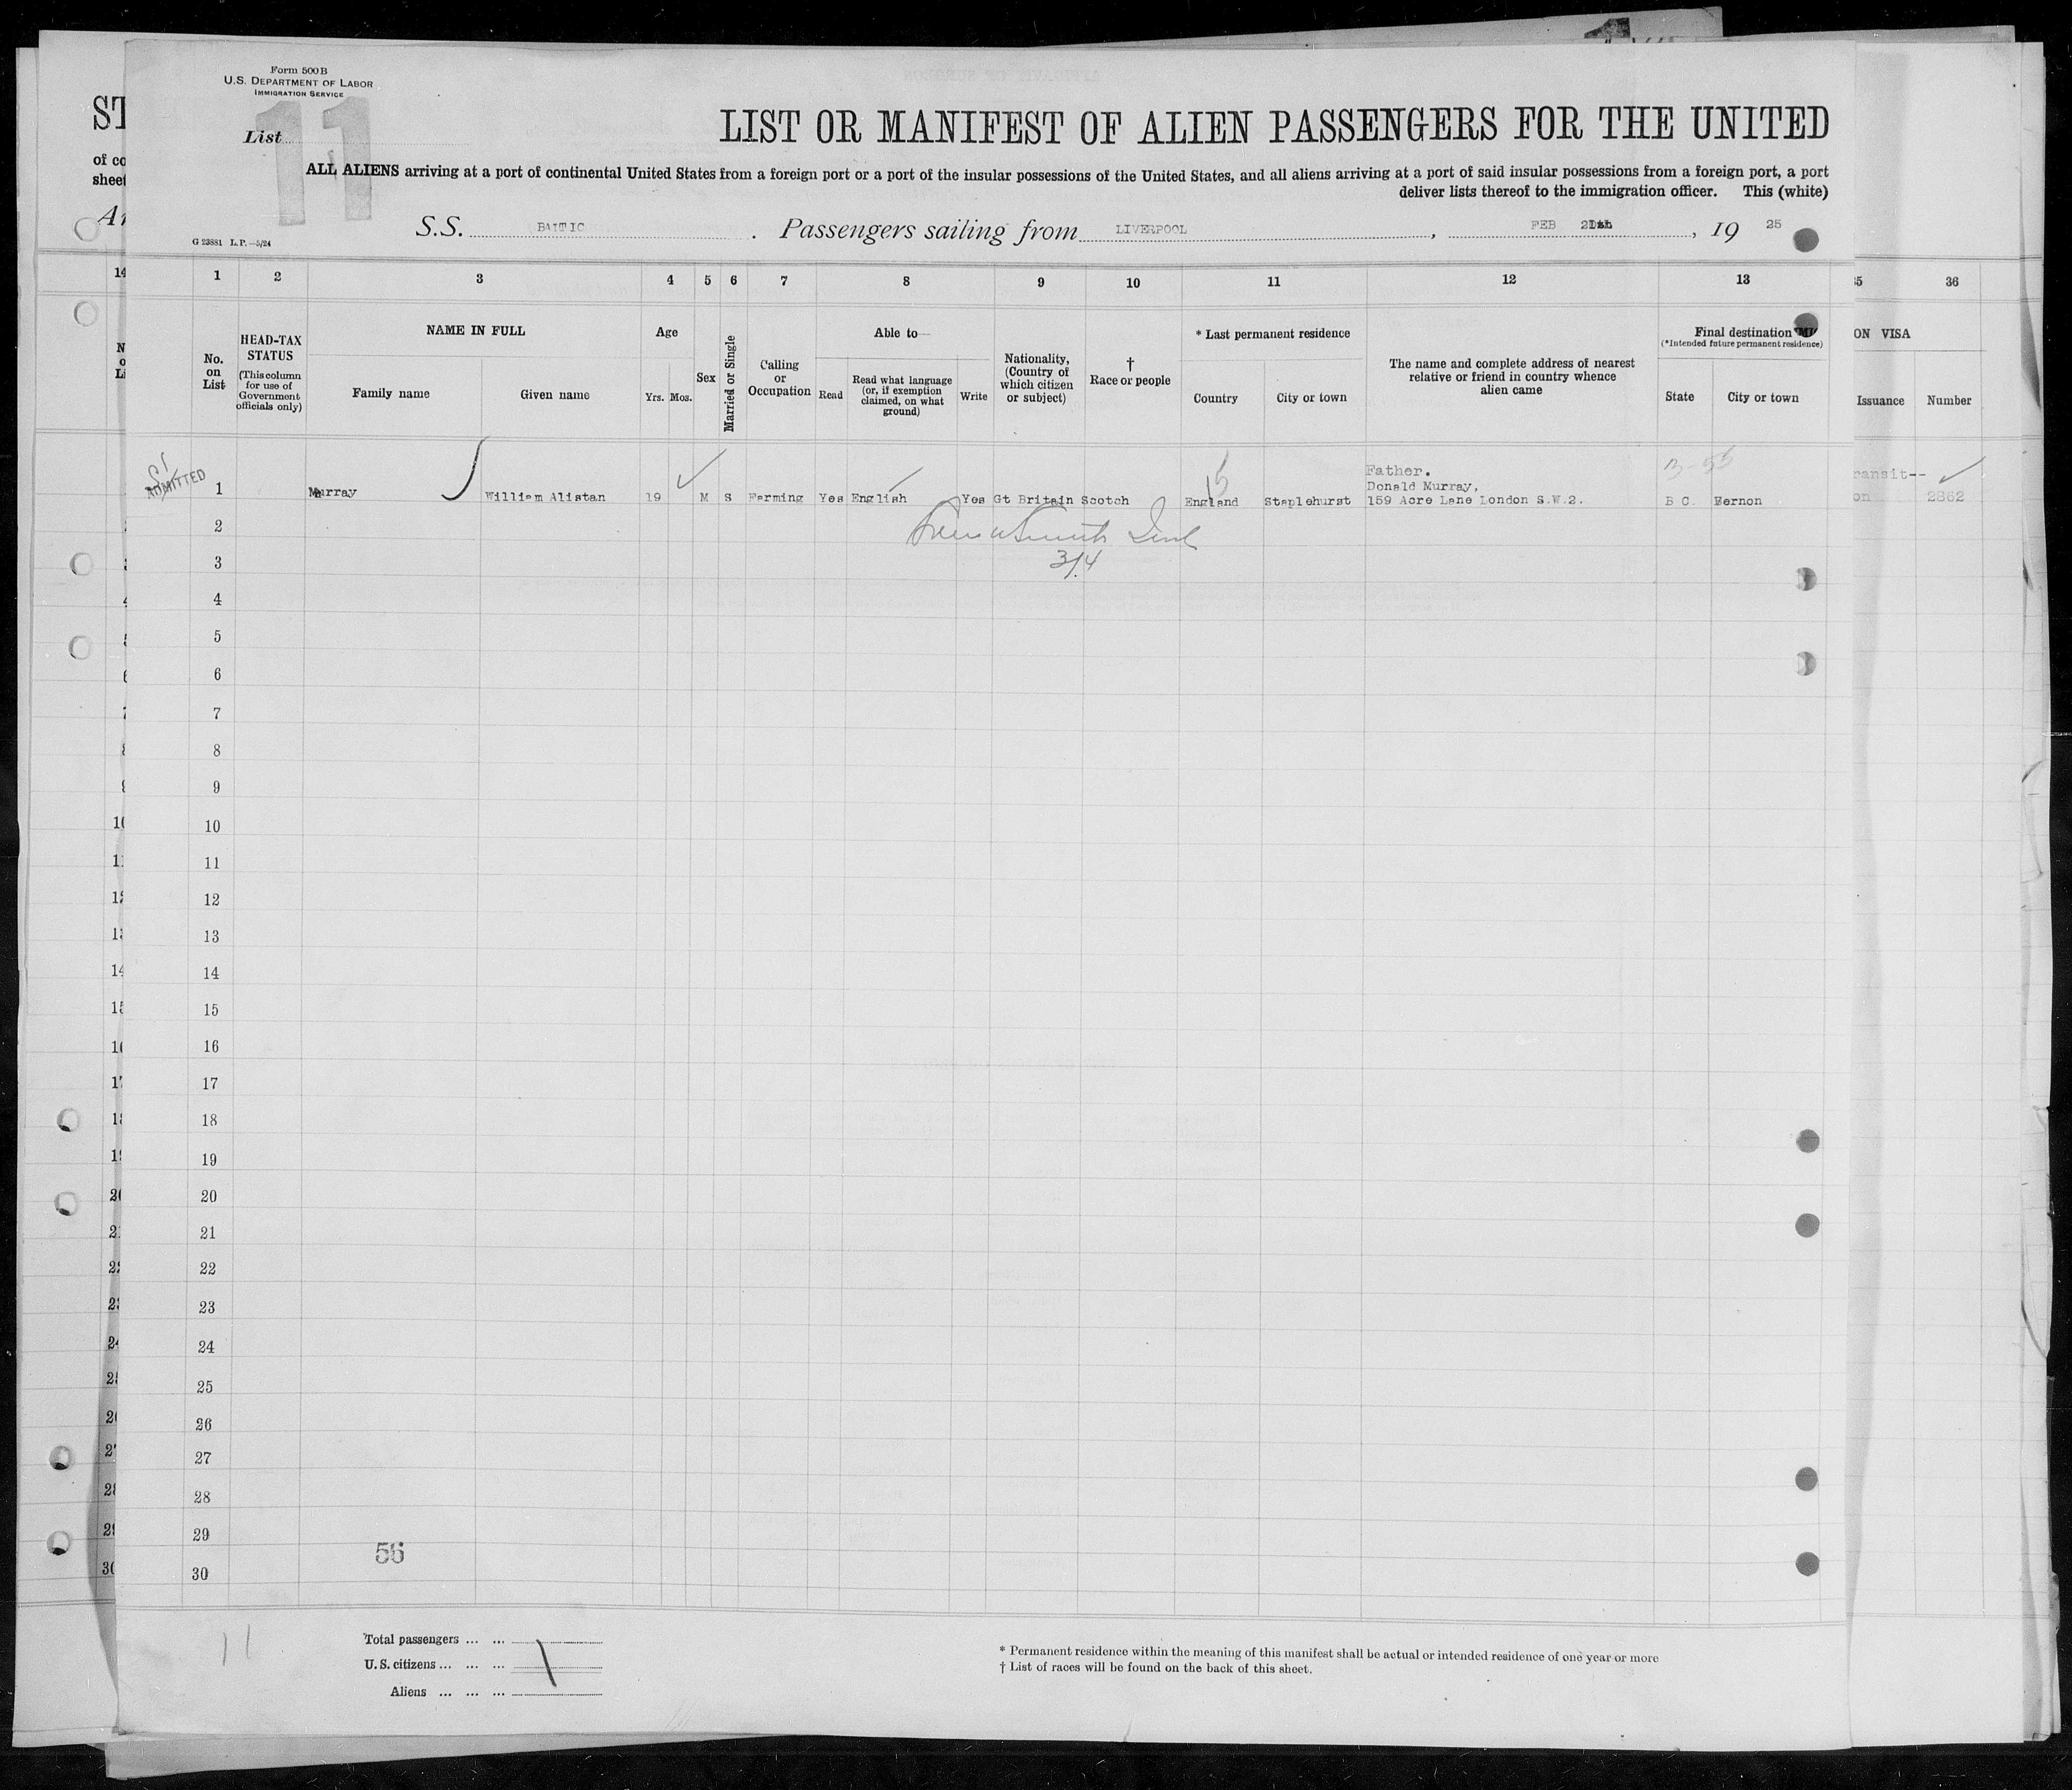 Form 500 B
U.S. DEPARTMENT OF LABOR
IMMIGRATION SERVICE
11
List
LIST OR MANIFEST OF ALIEN PASSENGERS FOR THE UNITED
ALL ALIENS arriving at a port of continental United States from a foreign port or a port of the insular possessions of the United States, and all aliens arriving at a port of said insular possessions from a foreign port, a port
deliver lists thereof to the immigration officer. This (white)
S.S. BALTIC. Passengers sailing from LIVERPOOL, FEB, 19 25
G 23881 L.P.—5/24
ST
of co
sheet
14
1 2 3 4 5 6 7 8 9 10 11 12 13
36
HEAD-TAX STATUS
(This column for use of Government officials only)
No. on List
NAME IN FULL
Family name
Given name
Age
Yrs. Mos.
Sex
Married or Single
Calling or Occupation
Able to—
Read
Read what language (or, if exemption claimed, on what ground)
Write
Nationality, (Country of which citizen or subject)
†
Race or people
* Last permanent residence
Country
City or town
The name and complete address of nearest
relative or friend in country whence
alien came
Final destination
(*Intended future permanent residence)
State
City or town
ON VISA
Issuance
Number
ADMITTED
Father.
Donald Murray,
1 Murray William Alistan 19 M S Farming Yes English Yes Gt Britain Scotch England Staplehurst 159 Acre Lane London S.W.2. B C. Vernon
ransit--
on 2862
15
3/4
2
3
4
5
6
7
8
9
10
11
12
13
14
15
16
17
18
19
20
21
22
23
24
25
26
27
28
29
30
56
11
Total passengers ... ...
U.S. citizens ... ... ...
Aliens ... ... ...
* Permanent residence within the meaning of this manifest shall be actual or intended residence of one year or more
† List of races will be found on the back of this sheet.